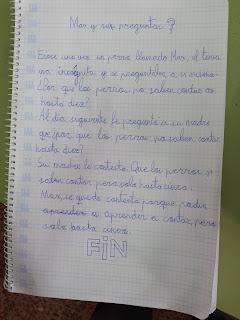 Max y sus preguntas ?
Erase una vez un perro llamado Max, el tenia
una incógnita y se preguntaba a si mismo
¿Por que los perros no saben contar
hasta diez?
Al dia siguiente le pregunto a su madre
que por que los perros no saben contar
hasta diez?
Su madre le contesto. Que los perros si
saben contar pero solo hasta cinco.
Max, se quedo contento porque podia
aprender a contar, pero
solo hasta cinco.
FIN